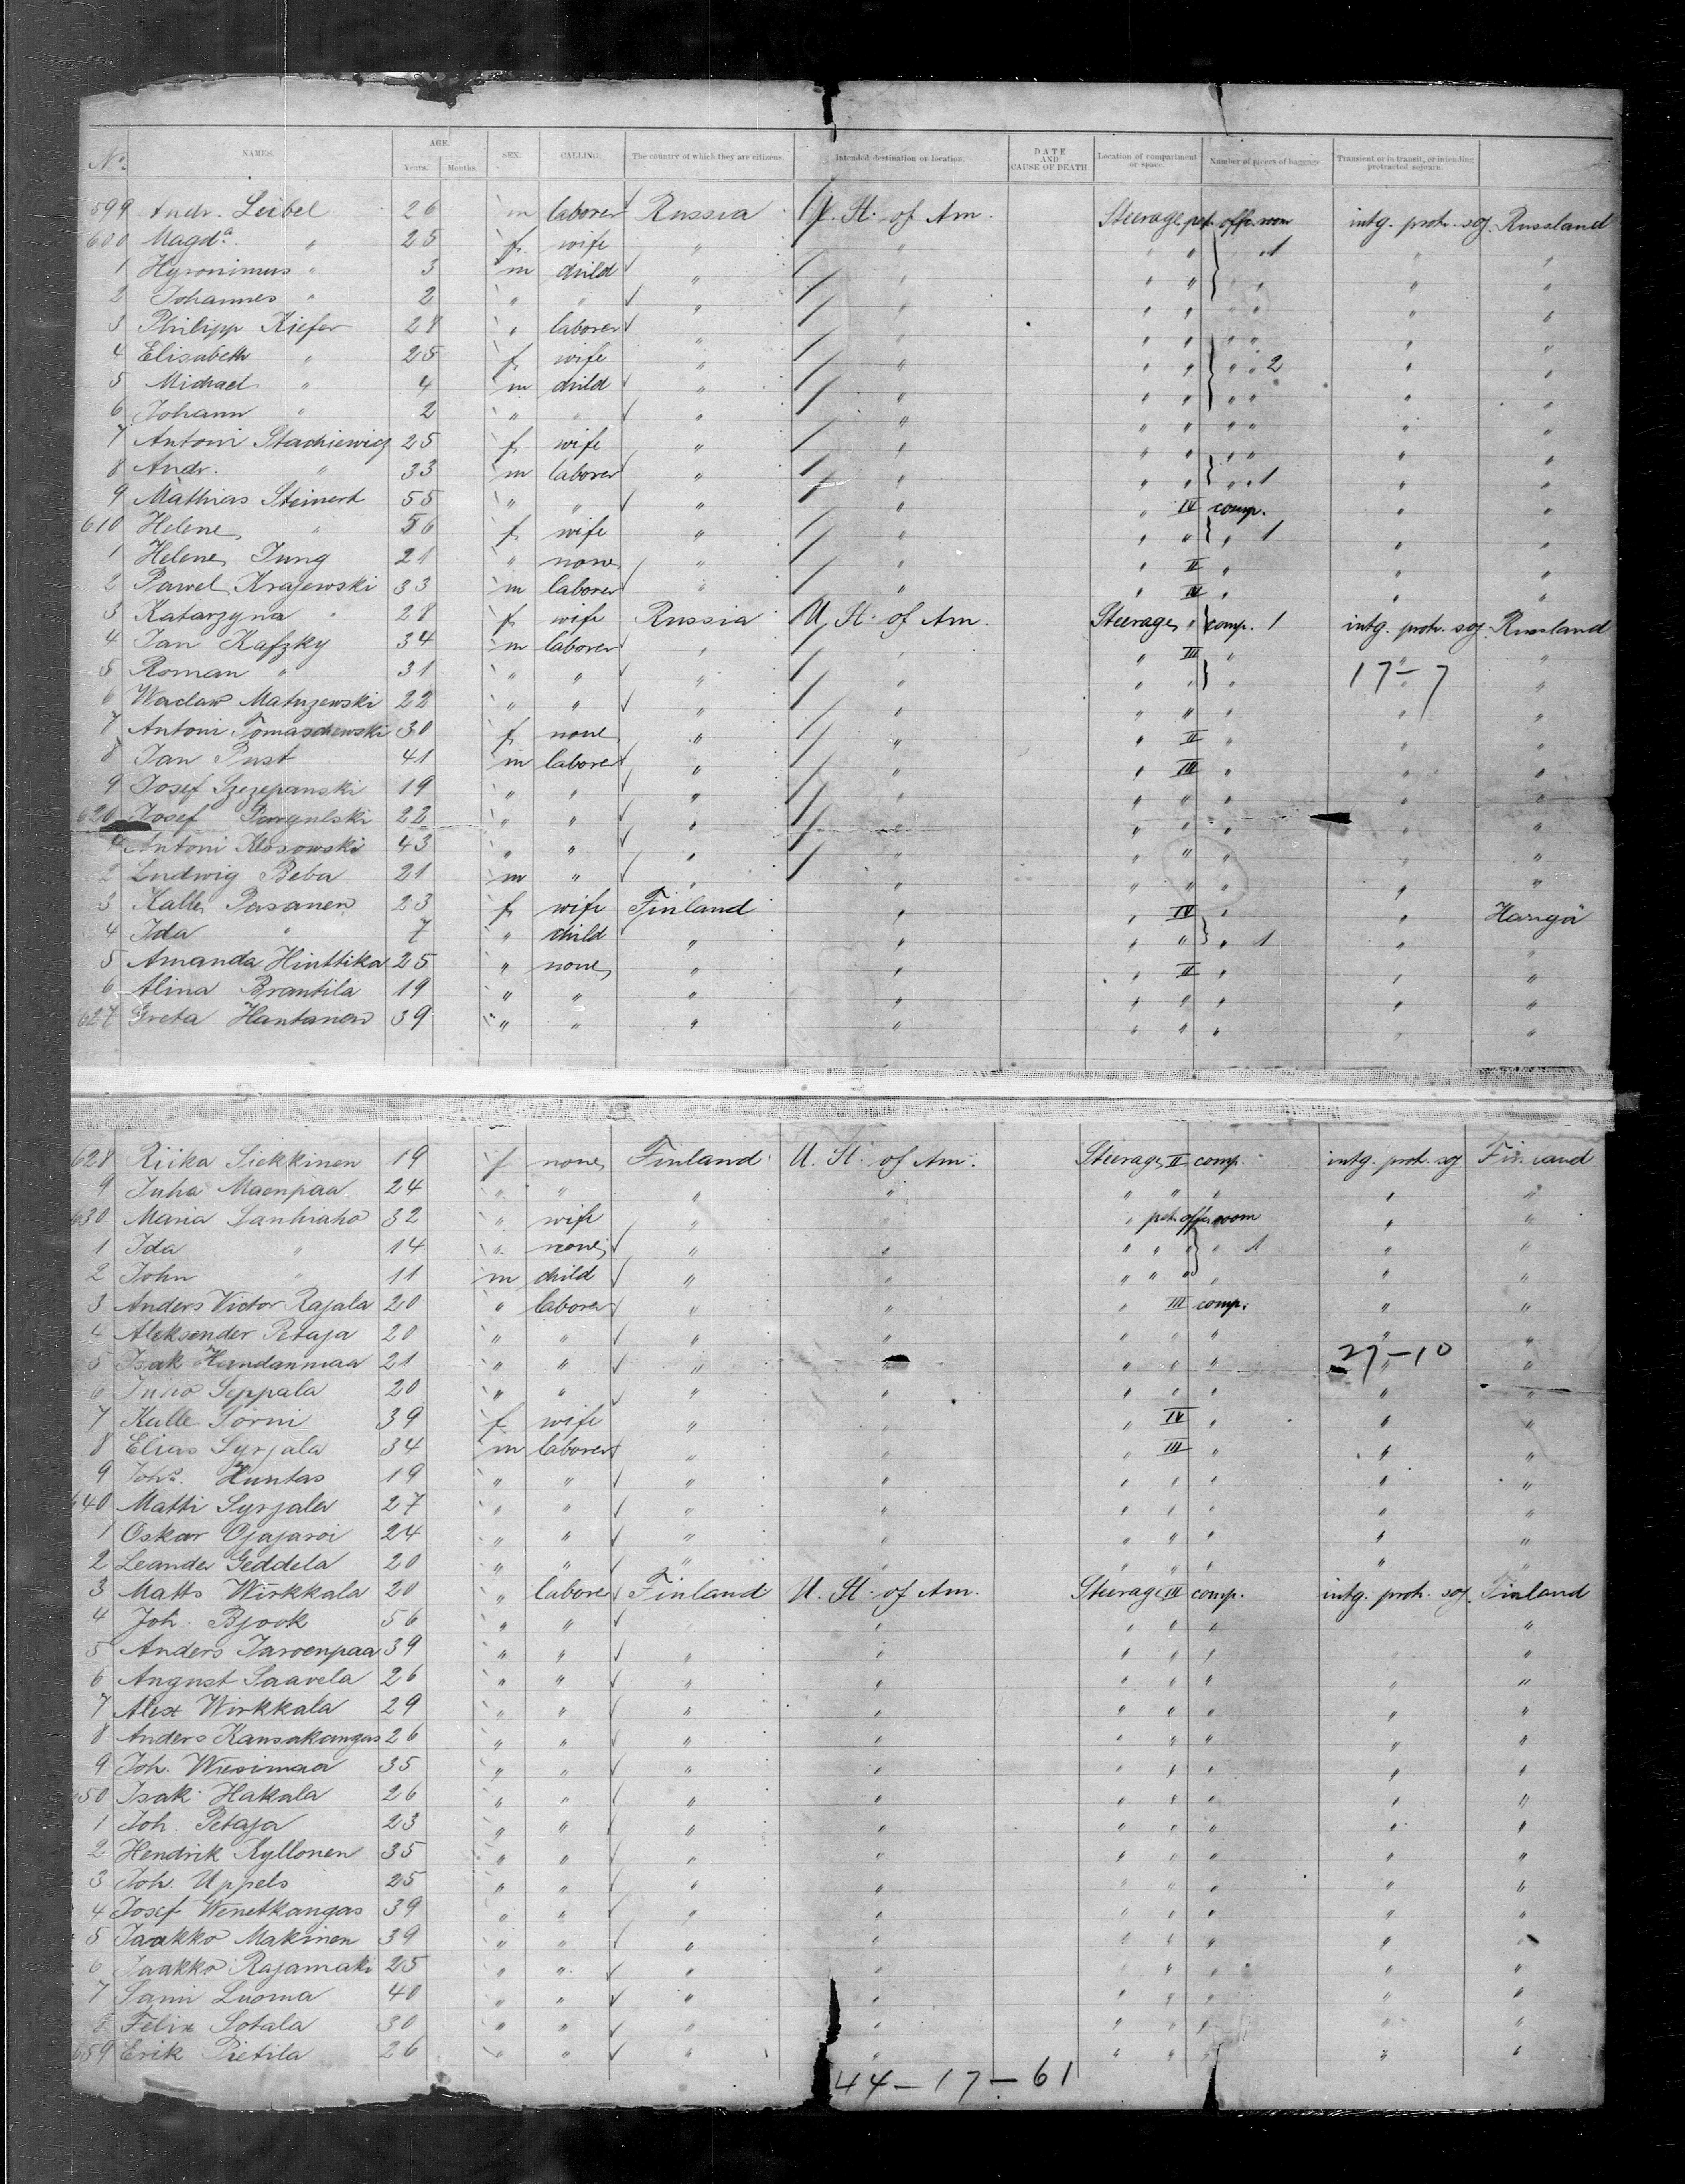 No. NAMES. AGE. Years. Months. SEX. CALLING. The country of which they are citizens. Intended destination or location. DATE AND CAUSE OF DEATH. Location of compartment or space. Number of pieces of baggage. Transient or in transit, or intending protracted sojourn.
599 Andr. Leibel 26 m laborer Russia U. St. of Am. Steerage pet. offr. room intg. protr. soj. Russland
600 Magda " 25 f wife " " " " " 1 " "
1 Hyronimus " 3 m child " " " " " "
2 Johannes " 2 " " " " " " " " " "
3 Philipp Kiefer 28 " laborer " " " " " " " "
4 Elisabeth " 25 f wife " " " " " " 2 " "
5 Michael " 4 m child " " " " " " " "
6 Johann " 2 " " " " " " " " " "
7 Antoni Stachiewicz 25 f wife " " " " " " " "
8 Andr. " 33 m laborer " " " " " " 1 " "
9 Mathias Steinert 55 " " " " " IV comp. " "
610 Helene " 56 f wife " " " " " 1 " "
1 Helene Jung 21 " none " " " II " " "
2 Pawel Krajewski 33 m laborer " " " IV " " "
3 Katarzyna " 28 f wife Russia U. St. of Am. Steerage " comp. 1 intg. protr. soj. Russland
4 Jan Kafzky 34 m laborer " " " III " " "
5 Roman " 31 " " " " " " " 17-7 "
6 Waclaw Matuzewski 22 " " " " " " " " "
7 Antoni Tomaschewski 30 f none " " " II " " "
8 Jan Pust 41 m laborer " " " III " " "
9 Josef Szezepanski 19 " " " " " " " " "
620 Josef Pargulski 22 " " " " " " " "
1 Antoni Klosowski 43 " " " " " " " " "
2 Ludwig Beba 21 m " " " " " " " "
3 Kalle Pasanen 23 f wife Finland " " IV " " Hangö
4 Ida " 7 " child " " " " " 1 " "
5 Amanda Hinttika 25 " none " " " II " " "
6 Alina Brantila 19 " " " " " " " " "
627 Greta Hantanen 39 " " " " " " " "
628 Riika Siekkinen 19 f none Finland U. St. of Am. Steerage II comp. intg. prot. soj Finland
9 Juha Maenpaa 24 " " " " " " " " "
630 Maria Sanhiaho 32 " wife " " pet. offr. room " "
1 Ida " 14 " none " " " " " " 1 " "
2 John " 11 m child " " " " " " " "
3 Anders Victor Rajala 20 " laborer " " " III comp. " "
4 Aleksender Petaja 20 " " " " " " " " "
5 Isak Handanmaa 21 " " " " " " " 27-10 "
6 Juho Seppala 20 " " " " " " " " "
7 Kalle Sorni 39 f wife " " " IV " " "
8 Elias Syrjala 34 m laborer " " " III " " "
9 Johs. Huntas 19 " " " " " " " " "
640 Matti Syrjala 27 " " " " " " " " "
1 Oskar Ojajarvi 24 " " " " " " " " "
2 Leander Geddela 20 " " " " " " " " "
3 Matts Wirkkala 20 " laborer Finland U. St. of Am. Steerage III comp. intg. prot. soj. Finland
4 Joh. Bjook 56 " " " " " " " "
5 Anders Jarvenpaa 39 " " " " " " " "
6 August Saavela 26 " " " " " " " " "
7 Alex Wirkkala 29 " " " " " " " " "
8 Anders Kansakangas 26 " " " " " " " " "
9 Joh. Wiesimaa 35 " " " " " " " " "
650 Isak Hakala 26 " " " " " " " " "
1 Joh. Petaja 23 " " " " " " " " "
2 Hendrik Kyllonen 35 " " " " " " " " "
3 Joh. Uppels 25 " " " " " " " " "
4 Josef Wenetkangas 39 " " " " " " " " "
5 Jaakko Makinen 39 " " " " " " " " "
6 Jaakko Rajamaki 25 " " " " " " " " "
7 Sami Luoma 40 " " " " " " " " "
8 Felix Sotala 30 " " " " " " " " "
659 Erik Pietila 26 " " " " " " " " "
44-17-61